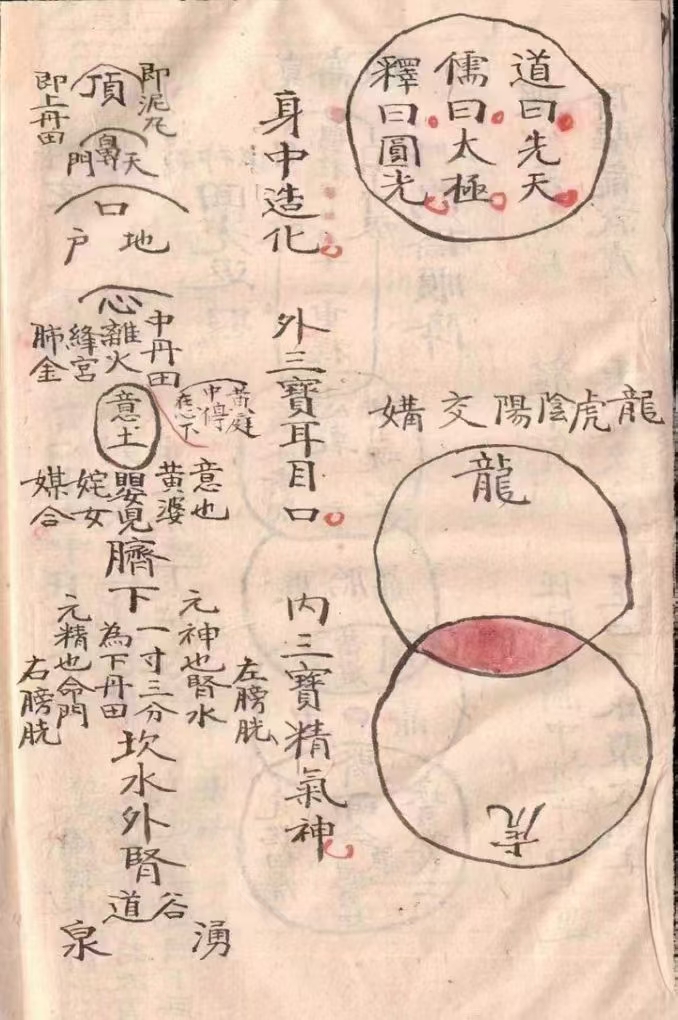 道曰先天
儒曰太極
釋曰圓光
龍虎陰陽交媾
龍
虎
身中造化
外三寶耳目口
內三寶精氣神
即泥丸
頂
即上丹田
天
鼻
門
口
地
戶
心
中丹田
離火
絳宮
肺金
意土
黃庭
中停
在心下
意也
黃婆
嬰兒
姹女
媒合
臍下
一寸三分
為下丹田
元神也腎水
左膀胱
元精也命門
右膀胱
坎水外腎
谷
道
湧
泉